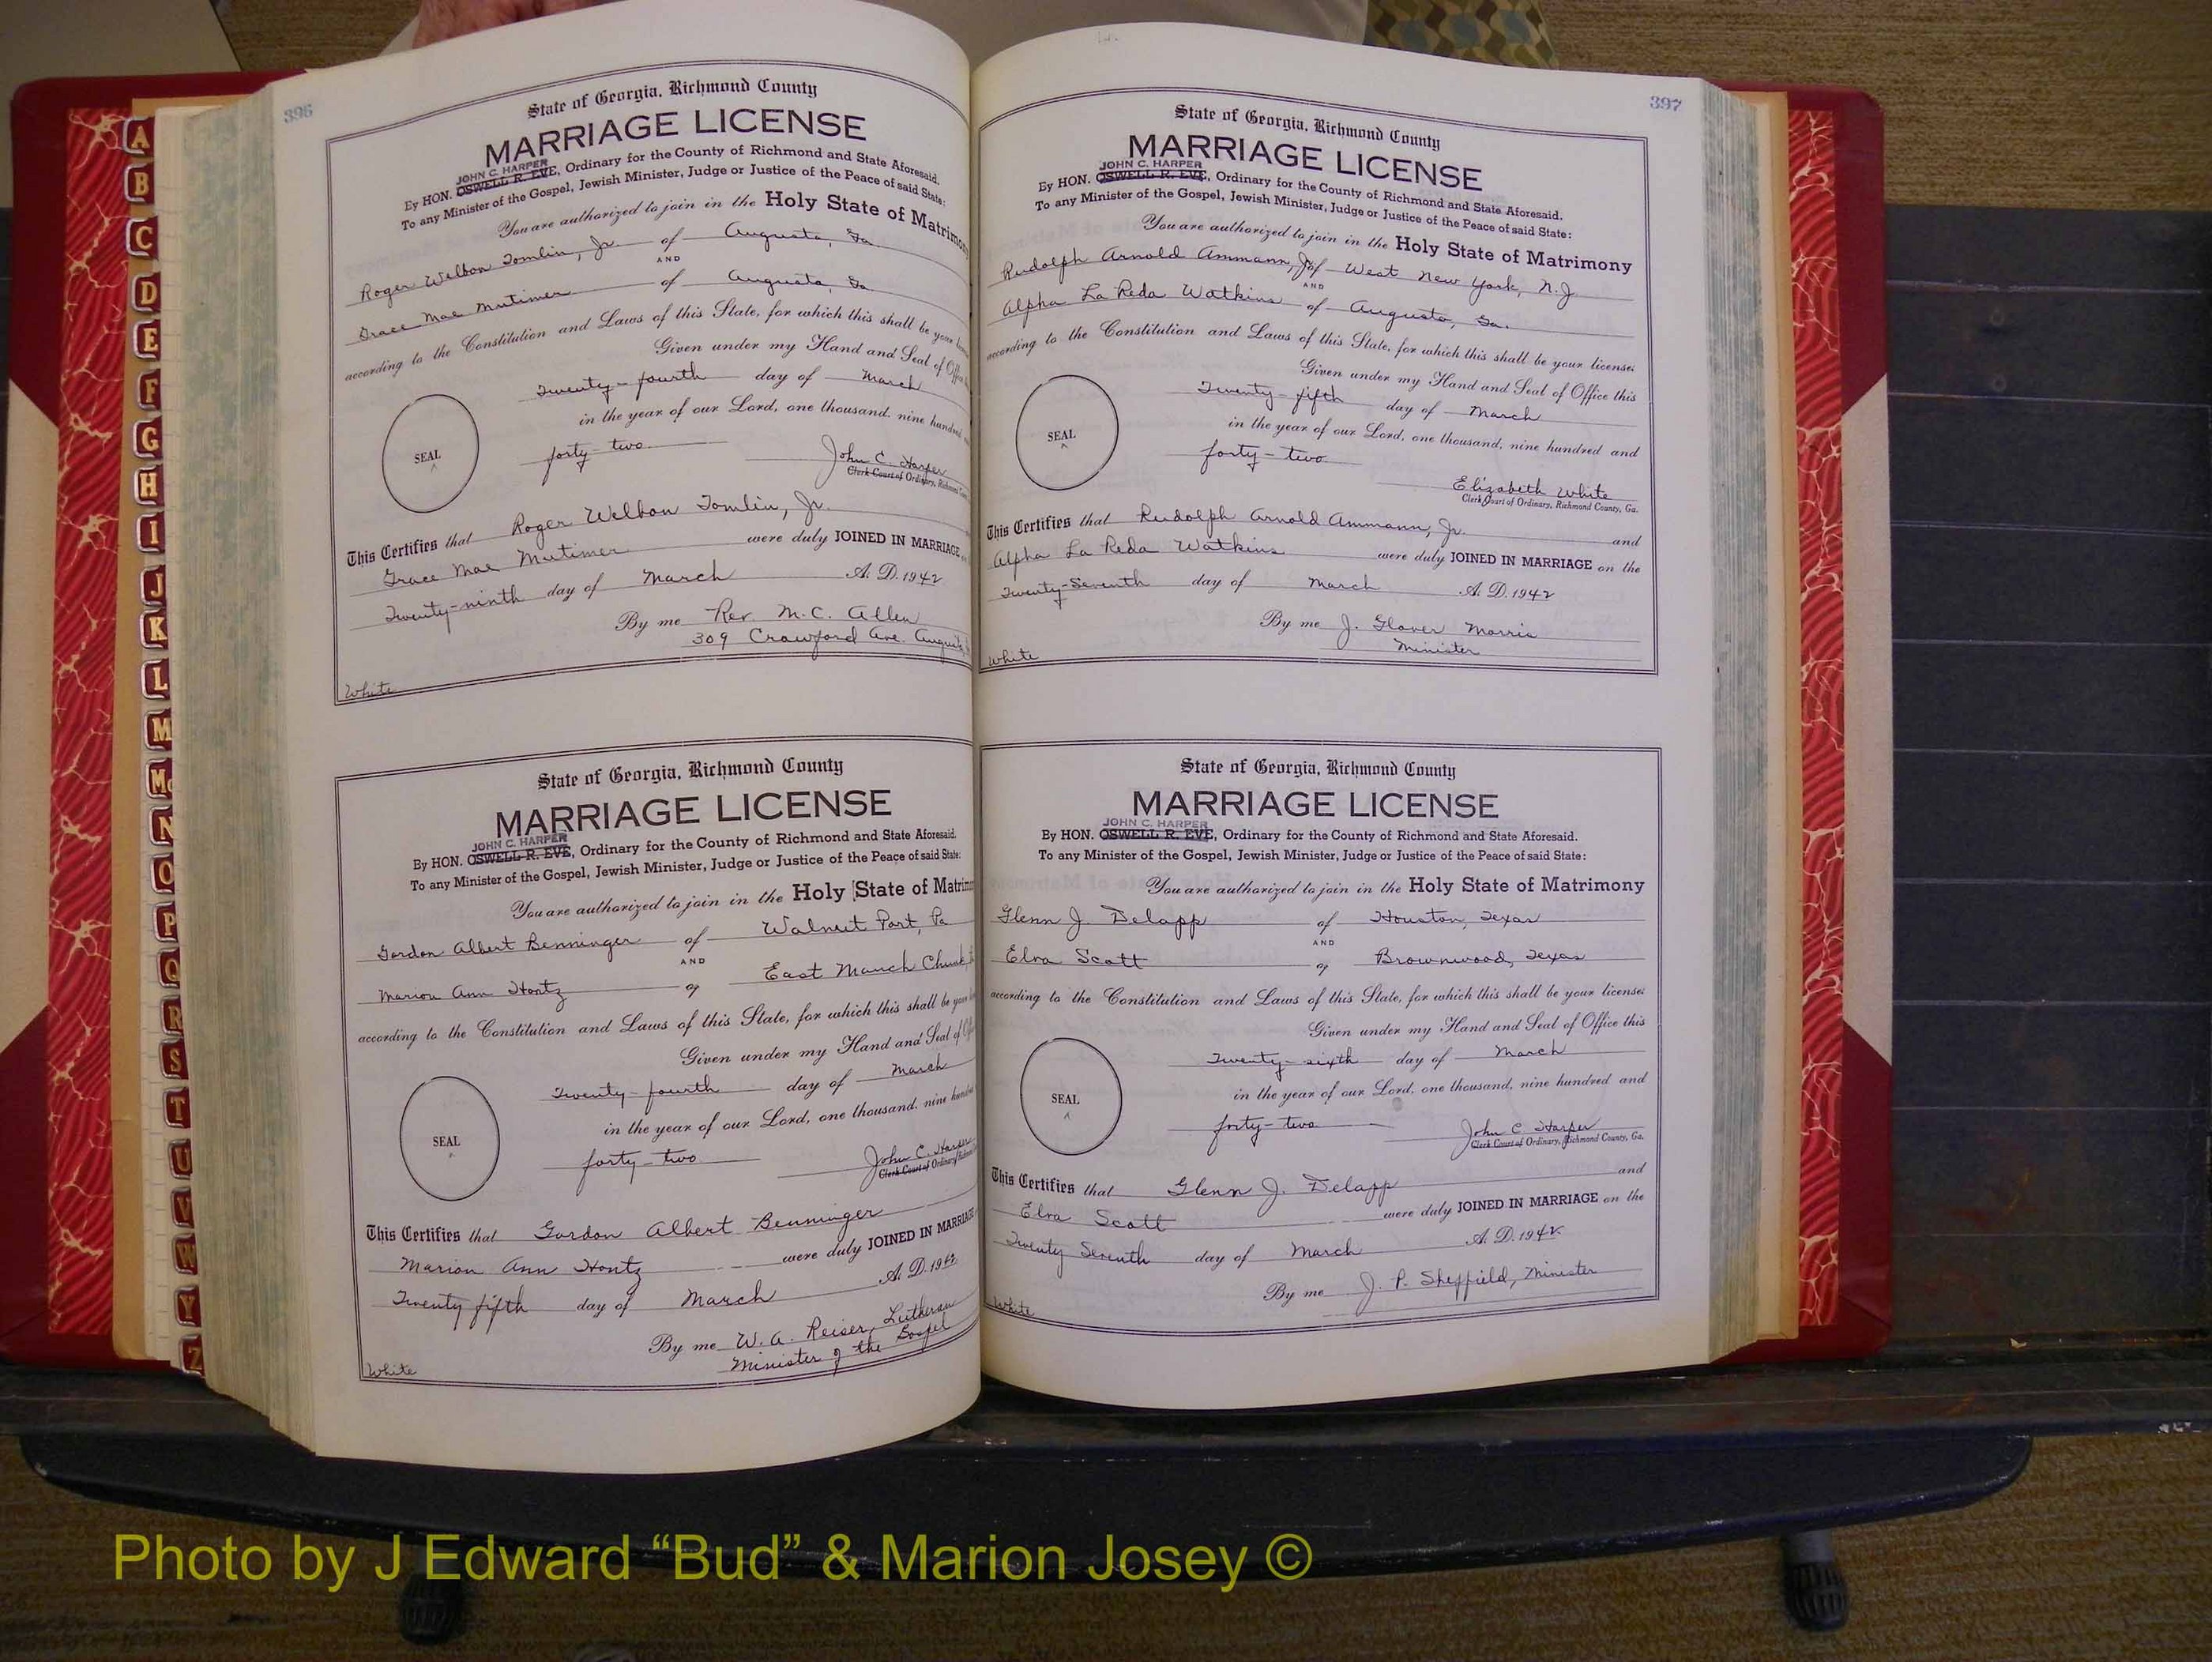 A
B
C
D
E
F
G
H
I
J
K
L
M
Mc
N
O
P
Q
R
S
T
U
V
W
Y
Z
396
State of Georgia, Richmond County
MARRIAGE LICENSE
JOHN C. HARPER
By HON. OSWELL R. EVE, Ordinary for the County of Richmond and State Aforesaid.
To any Minister of the Gospel, Jewish Minister, Judge or Justice of the Peace of said State:
You are authorized to join in the Holy State of Matrimony
Roger Welbon Tomlin, Jr. of Augusta, Ga.
AND
Grace Mae Mutimer of Augusta, Ga
according to the Constitution and Laws of this State, for which this shall be your
Given under my Hand and Seal of Office
Twenty-fourth day of March
in the year of our Lord, one thousand, nine hundred
forty-two
SEAL
John C. Harper
Clerk Court of Ordinary, Richmond
This Certifies that Roger Welbon Tomlin, Jr.
Grace Mae Mutimer were duly JOINED IN MARRIAGE
Twenty-ninth day of March A. D. 1942
By me Rev. M. C. Allen
309 Crawford Ave. Augusta
White
State of Georgia, Richmond County
MARRIAGE LICENSE
JOHN C. HARPER
By HON. OSWELL R. EVE, Ordinary for the County of Richmond and State Aforesaid.
To any Minister of the Gospel, Jewish Minister, Judge or Justice of the Peace of said State:
You are authorized to join in the Holy State of Matrim
Gordon Albert Benninger of Walnut Port, Pa
AND
Marion Ann Hontz of East Mauch Chunk,
according to the Constitution and Laws of this State, for which this shall be your
Given under my Hand and Seal of
Twenty-fourth day of March
in the year of our Lord, one thousand, nine hundred
forty-two
SEAL
John C. Harper
Clerk Court of Ordinary, Richmond
This Certifies that Gordon Albert Benninger
Marion Ann Hontz were duly JOINED IN MARRIAGE
Twenty fifth day of March A. D. 1942
By me W. A. Reiser, Lutheran
Minister of the Gospel
White
397
State of Georgia, Richmond County
MARRIAGE LICENSE
JOHN C. HARPER
By HON. OSWELL R. EVE, Ordinary for the County of Richmond and State Aforesaid.
To any Minister of the Gospel, Jewish Minister, Judge or Justice of the Peace of said State:
You are authorized to join in the Holy State of Matrimony
Rudolph Arnold Ammann, Jr. of West New York, N.J
AND
Alpha La Reda Watkins of Augusta, Ga.
according to the Constitution and Laws of this State, for which this shall be your license:
Given under my Hand and Seal of Office this
Twenty-fifth day of March
in the year of our Lord, one thousand, nine hundred and
forty-two
SEAL
Elizabeth White
Clerk Court of Ordinary, Richmond County, Ga.
This Certifies that Rudolph Arnold Ammann, Jr. and
Alpha La Reda Watkins were duly JOINED IN MARRIAGE on the
Twenty-Seventh day of March A. D. 1942
By me J. Glover Morris
Minister
White
State of Georgia, Richmond County
MARRIAGE LICENSE
JOHN C. HARPER
By HON. OSWELL R. EVE, Ordinary for the County of Richmond and State Aforesaid.
To any Minister of the Gospel, Jewish Minister, Judge or Justice of the Peace of said State:
You are authorized to join in the Holy State of Matrimony
Glenn J. Delapp of Houston, Texas
AND
Elva Scott of Brownwood, Texas
according to the Constitution and Laws of this State, for which this shall be your license:
Given under my Hand and Seal of Office this
Twenty-sixth day of March
in the year of our Lord, one thousand, nine hundred and
forty-two
SEAL
John C Harper
Clerk Court of Ordinary, Richmond County, Ga.
This Certifies that Glenn J. Delapp and
Elva Scott were duly JOINED IN MARRIAGE on the
Twenty Seventh day of March A. D. 1942
By me J. P. Sheffield, Minister
White
Photo by J Edward “Bud” & Marion Josey ©